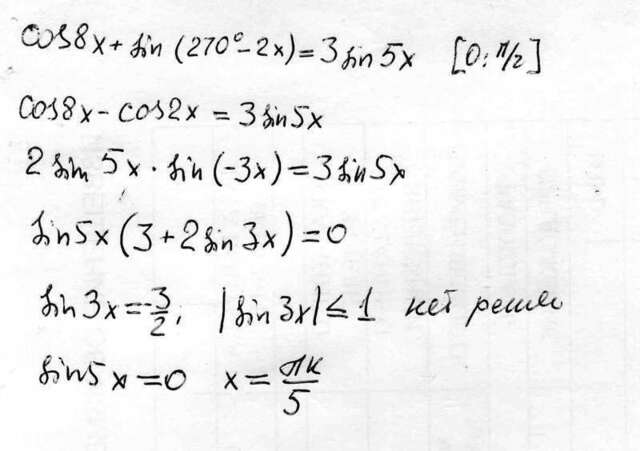 cos8x + sin (270° - 2x) = 3 sin 5x [0; π/2]
cos8x - cos2x = 3 sin5x
2 sin 5x · sin (-3x) = 3 sin5x
sin5x (3 + 2 sin 3x) = 0
sin 3x = -3/2; |sin 3x| ≤ 1 нет реше
sin5x = 0 x = πk/5